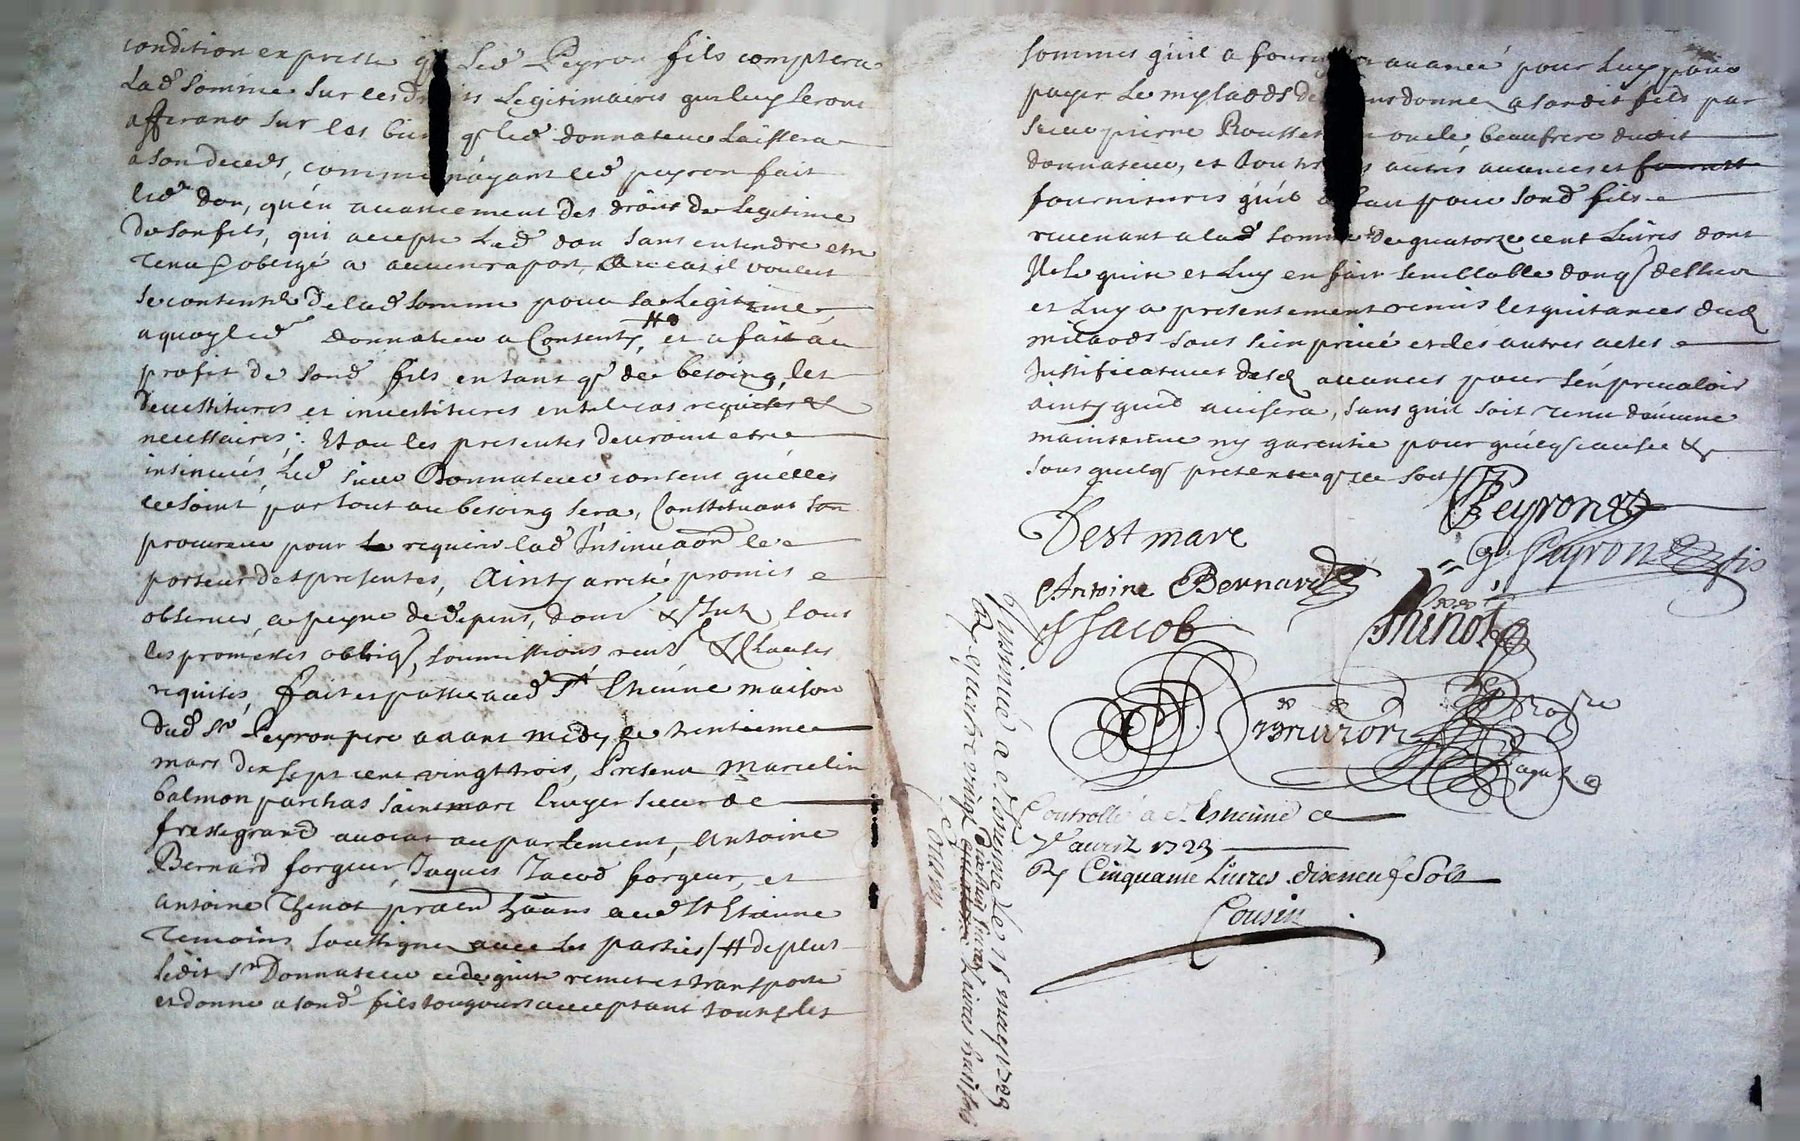 condition expresse q led Peyron fils comptera
Lad somme sur les d ts Legitimaires qui luy seront
afferans sur les bien q led donnateur Laissera
a son deceds, comme n'ayant led peyron fait
led don, qu'en avancement des droits de Legitime
de son fils, qui accepte Lad don sans entendre etre
tenu obligé a aucun raport, Au cas il voulut
se contenter de lad somme pour sa Legitime
a quoy led donnateur a Consenty, # et a fait au
profit de sond fils en tant q de besoing, les
devestitures et investitures en tel cas requises &
necessaires; Et ou les presentes devroint etre
insinuées, Led sieur Donnateur consent qu'elles
le soint partout au besoing sera, Constituant son
procureur pour le requerir lad Insinuaōn le
porteur des presentes, Ainsy arresté promis
observer, a peyne de depens, dom & Int sous
les promesses obblig, soumissions renō & clauses
requises, fait et passé aud St Etienne maison
dud Sr Peyron pere avant midy le trentieme
mars dix sept cent vingt trois, Presens marcelin
balmon parchas saint marc Ecuyer sieur de
fressegrand avocat au parlement, Antoine
Bernard forgeur, Jaques Jacod forgeur, et
antoine Thinot pracn hāans aud St Etienne
temoins soussignes avec les parties / # de plus
ledit Sr Donnateur cede quite remet et transporte
et donne a sond fils toujours acceptant toutes les
sommes qu'il a fourny avancé pour Luy pour
payer Le mylaods de ordonné a sondit fils par
sieur pierre Rousset oncle, beaufrere dudit
donnateur, et toutes autres avances et
fournitures qu'il a fait pour sond fils
revenant a lad somme de quatorze cent Livres dont
Il le quite et Luy en fait semblable donō dessus
et Luy a presentement remis les quitances dud
milaods sous sein privé et les autres actes
Justificatives desd avances pour s'en prevaloir
ainsy quil avisera, sans quil soit tenu d'aucune
maintenue ny garentie pour quelq cause &
sous quelq pretexte q ce soit /
Peyron
Dest marc
Peyron fils
Antoine Bernard
Thinot
J Jacob
Bruzon
Nore
Royal
Controllé a St Estienne ce
7e avril 1723
R Cinquante Livres dixneuf Sols
Cousin
Jnsinué a St Estienne Le 15 may 1723
R quatre vingt Livres huit sols
Cousin